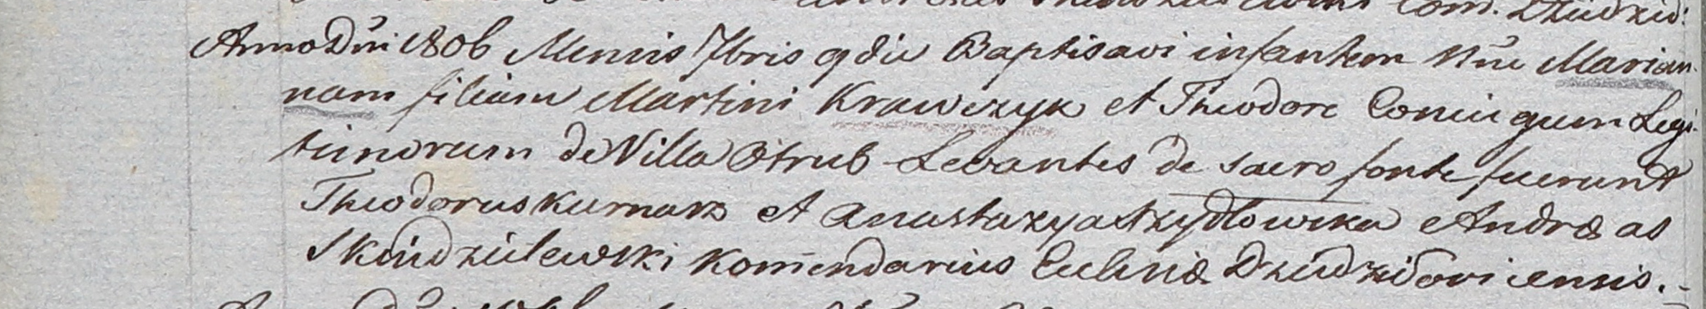 Com. Dziudzid:
Anno Dni 1806 Mensis 7bris 9 die Baptisavi infantem Nne Marian
nam filiam Martini Krawczyk et Theodore Coniugum Legi
timorum de Villa Otrub Levantes de sacro fonte fuerunt
Theodorus Kurnarz et Anastazya Szydłowska Andreas
Skindzielewski Komendarius Eclesiæ Dziudzidovicensis.-